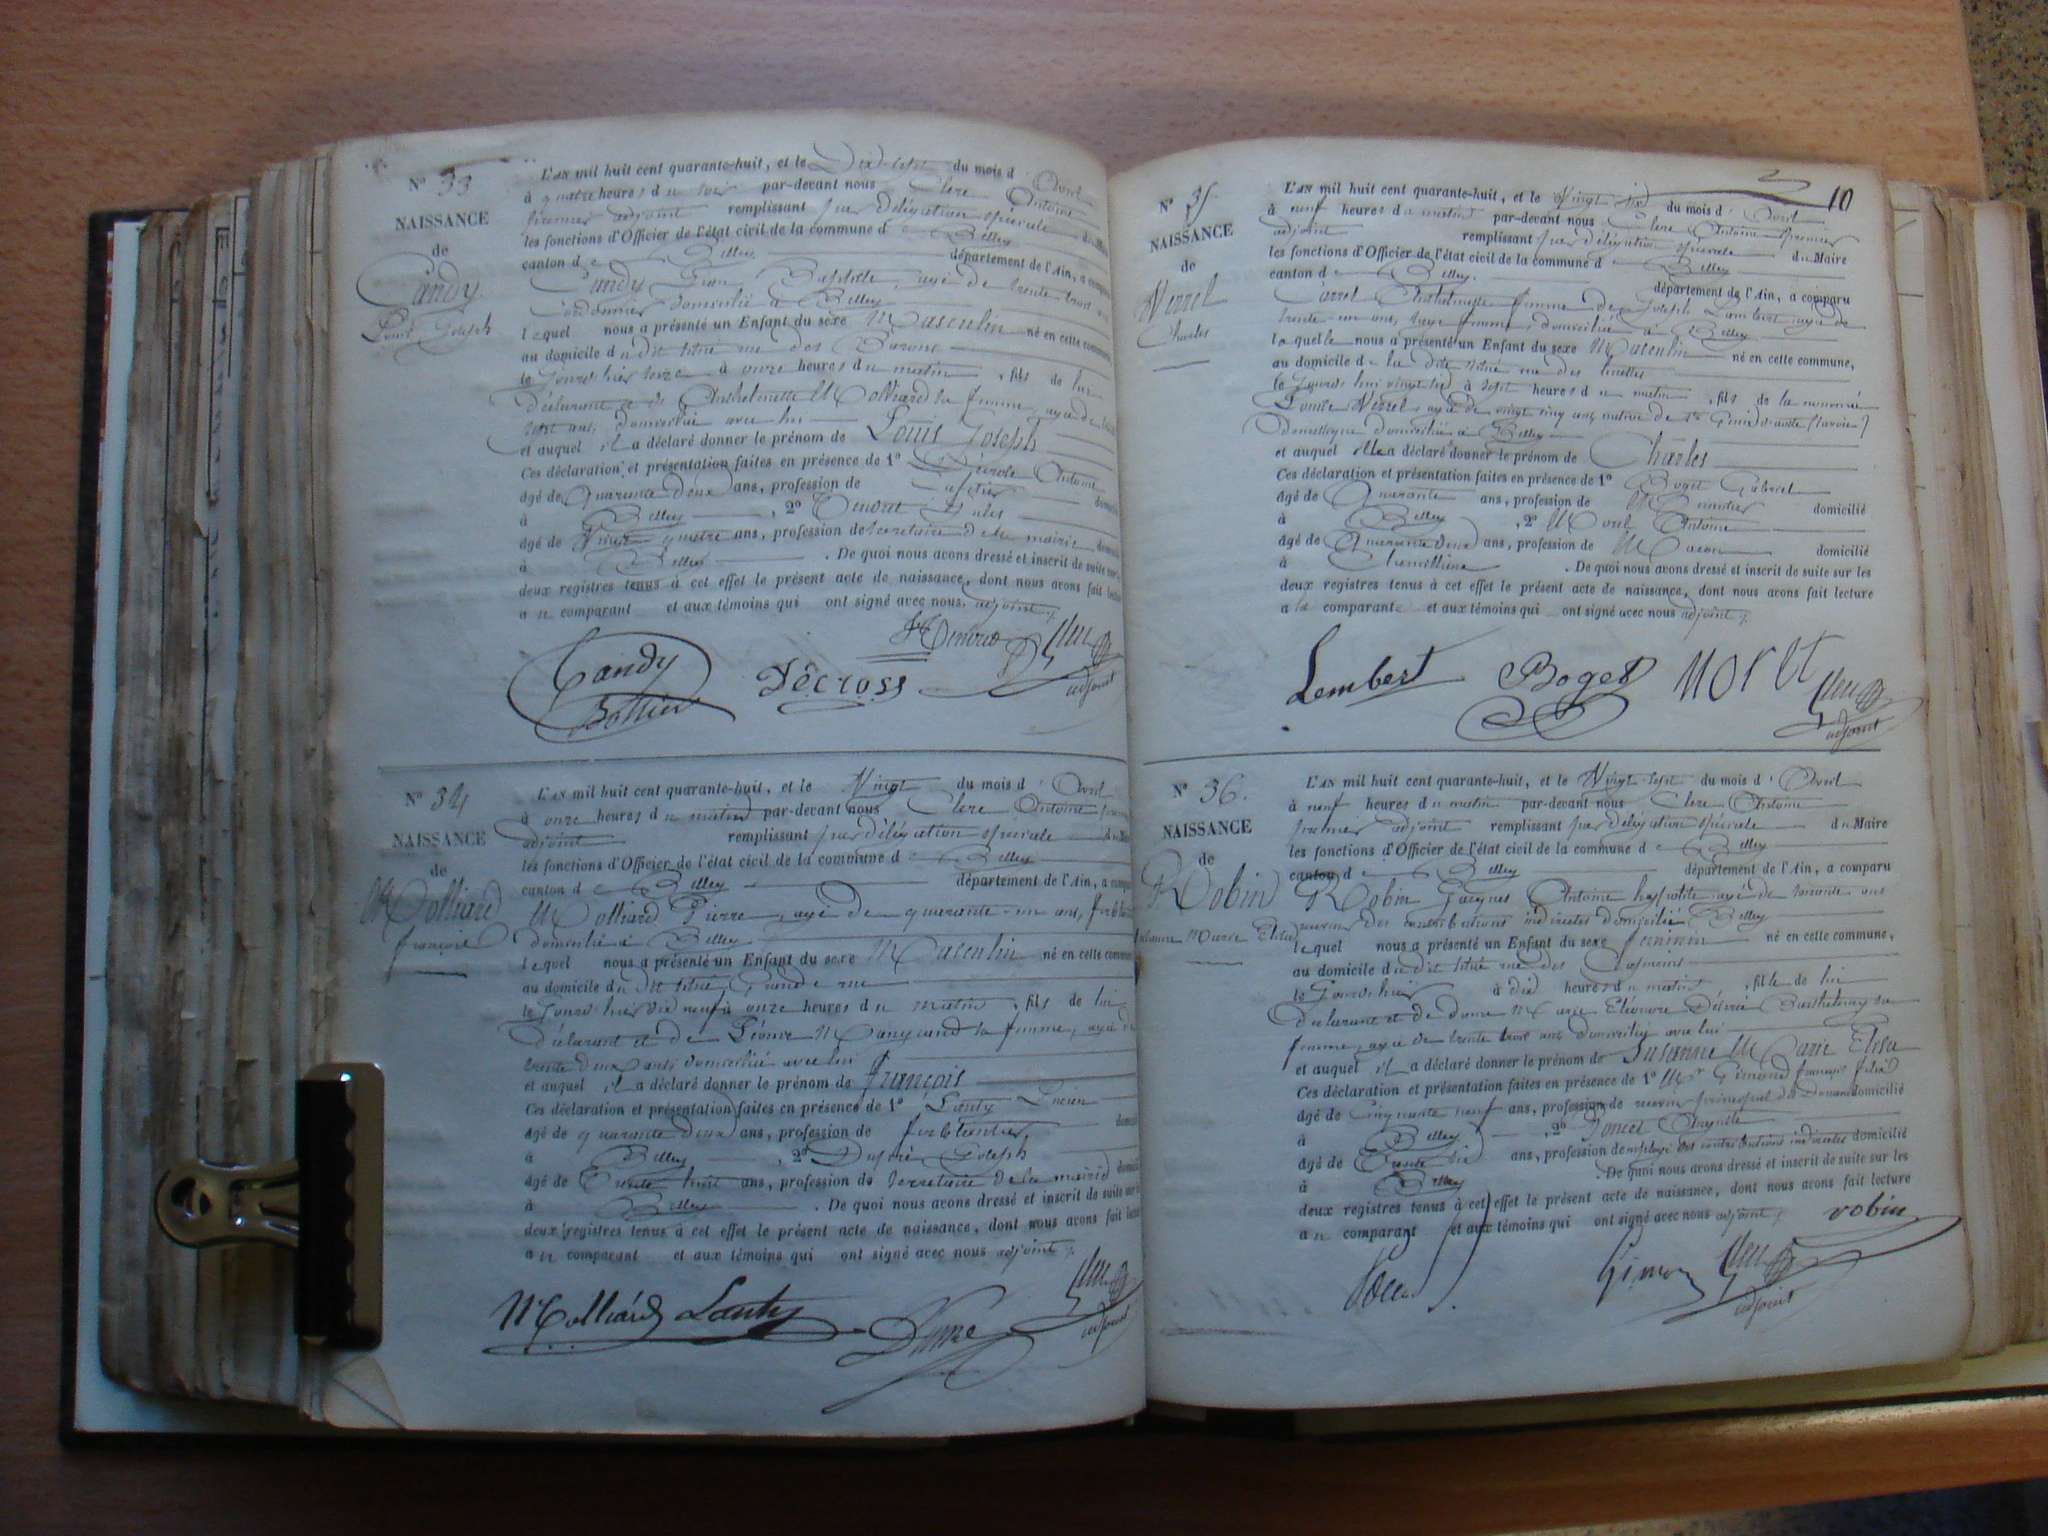 N° 33
NAISSANCE
de
Candy
Louis Joseph
L'AN mil huit cent quarante-huit, et le Dix sept du mois d'Avril
à quatre heures du soir par-devant nous Clerc Antoine
premier adjoint remplissant par délégation spéciale du Maire
les fonctions d'Officier de l'état civil de la commune de Belley
canton de Belley département de l'Ain, a comparu
Candy Jean Baptiste, agé de trente trois ans
Cordonnier domicilié à Belley
lequel nous a présenté un Enfant du sexe Masculin né en cette commune,
au domicile du dit situé rue des Barons
le jour hier seize à onze heures du matin, fils de lui
déclarant et de Anthelmette Molliard sa femme, agée de
sept ans, domiciliée avec lui
et auquel il a déclaré donner le prénom de Louis Joseph
Ces déclaration et présentation faites en présence de 1° Décroso Antoine
âgé de Quarante deux ans, profession de Cafetier domicilié
à Belley, 2° Jules
âgé de Vingt quatre ans, profession de secretaire de la mairie domicilié
à Belley. De quoi nous avons dressé et inscrit de suite sur les
deux registres tenus à cet effet le présent acte de naissance, dont nous avons fait lecture
au comparant et aux témoins qui ont signé avec nous adjoint
Candy
Décross
adjoint
N° 34
NAISSANCE
de
Molliard
françois
L'AN mil huit cent quarante-huit, et le Vingt du mois d'Avril
à onze heures du matin par-devant nous Clerc Antoine premier
adjoint remplissant par délégation spéciale du Maire
les fonctions d'Officier de l'état civil de la commune de Belley
canton de Belley département de l'Ain, a comparu
Molliard Pierre, agé de quarante-un ans, ferblantier
domicilié à Belley
lequel nous a présenté un Enfant du sexe Masculin né en cette commune
au domicile du dit situé Grande rue
le jour hier dix neuf à onze heures du matin, fils de lui
déclarant et de sa femme, agée de
trente deux ans, domiciliée avec lui
et auquel il a déclaré donner le prénom de françois
Ces déclaration et présentation faites en présence de 1° Lanty Lucien
âgé de quarante deux ans, profession de ferblantier domicilié
à Belley, 2° Dupré Joseph
âgé de Trente huit ans, profession de Secretaire de la mairie domicilié
à Belley. De quoi nous avons dressé et inscrit de suite sur les
deux registres tenus à cet effet le présent acte de naissance, dont nous avons fait lecture
au comparant et aux témoins qui ont signé avec nous adjoint
Molliard Lanty
adjoint
10
N° 35
NAISSANCE
de
Verrel
Charles
L'AN mil huit cent quarante-huit, et le Vingt six du mois d'Avril
à neuf heures du matin par-devant nous Clerc Antoine premier
adjoint remplissant par délégation spéciale du Maire
les fonctions d'Officier de l'état civil de la commune de Belley
canton de Belley. département de l'Ain, a comparu
Carrel Anthelmette femme de Joseph Lambert agée de
trente-un ans, sage femme, domiciliée à Belley
laquelle nous a présenté un Enfant du sexe Masculin né en cette commune,
au domicile de la dite située rue des
le jourd'hui vingt six à sept heures du matin, fils de la nommée
Louise Verrel agée de vingt cinq ans, native de St (Savoie)
domestique domiciliée à Belley
et auquel elle a déclaré donner le prénom de Charles
Ces déclaration et présentation faites en présence de 1° Boget Gabriel
âgé de Quarante ans, profession de domicilié
à Belley, 2° Morel Antoine
âgé de Quarante deux ans, profession de Maçon domicilié
à. De quoi nous avons dressé et inscrit de suite sur les
deux registres tenus à cet effet le présent acte de naissance, dont nous avons fait lecture
a la comparante et aux témoins qui ont signé avec nous adjoint
Lembert Boget
adjoint
N° 36.
NAISSANCE
de
Robin
Susanne Marie Elisa
L'AN mil huit cent quarante-huit, et le Vingt-sept du mois d'Avril
à neuf heures du matin par-devant nous Clerc Antoine
premier adjoint remplissant par délégation spéciale du Maire
les fonctions d'Officier de l'état civil de la commune de Belley
canton de Belley département de l'Ain, a comparu
Robin Jacques Antoine agé de ans
des contributions indirectes domicilié Belley
lequel nous a présenté un Enfant du sexe féminin né en cette commune,
au domicile du dit situé rue des
le jour hier à dix heures du matin, fille de lui
déclarant et de dame Marie Eléonore Barthelemy sa
femme, agée de trente trois ans, domiciliée avec lui
et auquel il a déclaré donner le prénom de Susanne Marie Elisa
Ces déclaration et présentation faites en présence de 1° Mr Gimond françois
âgé de Cinquante neuf ans, profession de receveur principal des Douanes domicilié
à Belley, 2° Poncet
âgé de Trente six ans, profession de employé des contributions indirectes domicilié
à Belley. De quoi nous avons dressé et inscrit de suite sur les
deux registres tenus à cet effet le présent acte de naissance, dont nous avons fait lecture
au comparant et aux témoins qui ont signé avec nous adjoint
robin
adjoint